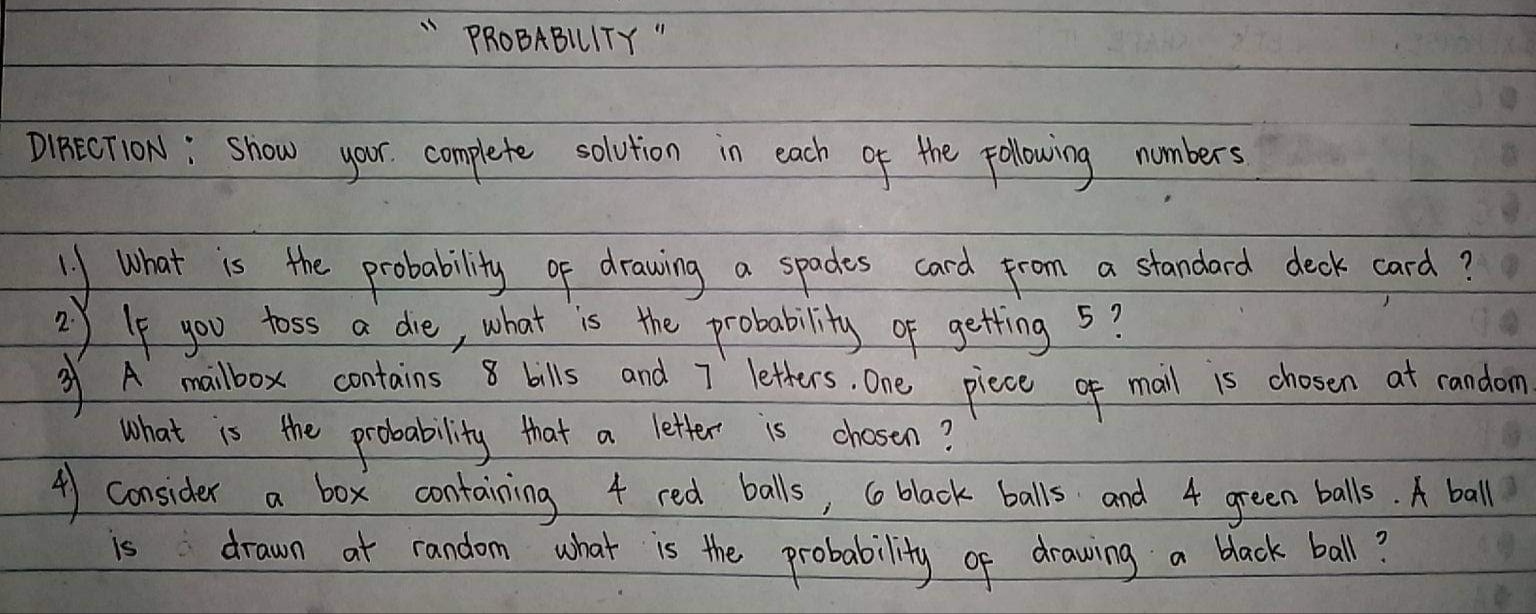 " PROBABILITY "
DIRECTION : Show your complete solution in each of the following numbers
1.) What is the probability of drawing a spades card from a standard deck card ?
2.) If you toss a die, what is the probability of getting 5 ?
3.) A mailbox contains 8 bills and 7 letters. One piece of mail is chosen at random.
What is the probability that a letter is chosen ?
4.) Consider a box containing 4 red balls, 6 black balls and 4 green balls. A ball
is drawn at random what is the probability of drawing a black ball ?